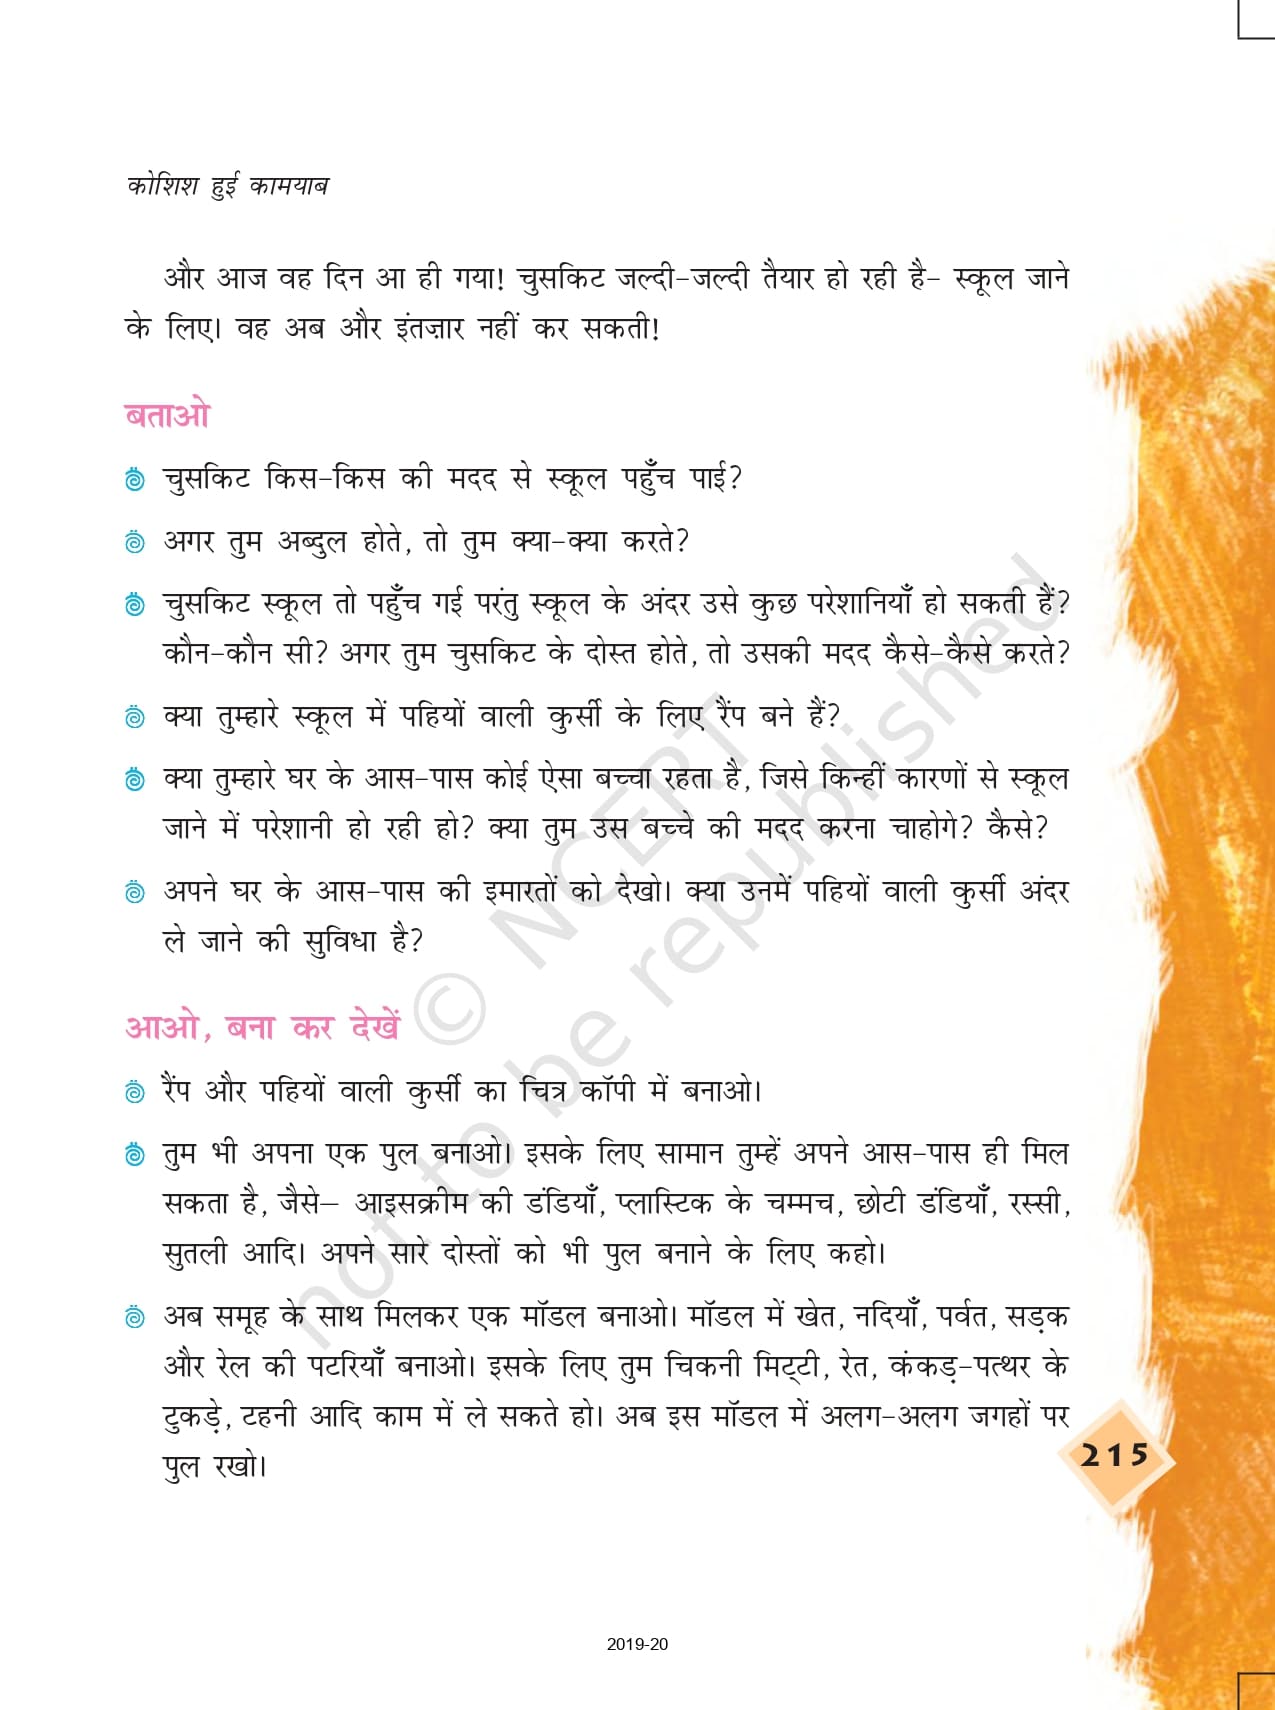 कोशिश हुई कामयाब
और आज वह दिन आ ही गया! चुसकिट जल्दी-जल्दी तैयार हो रही है- स्कूल जाने
के लिए। वह अब और इंतज़ार नहीं कर सकती!
बताओ
चुसकिट किस-किस की मदद से स्कूल पहुँच पाई?
अगर तुम अब्दुल होते, तो तुम क्या-क्या करते?
चुसकिट स्कूल तो पहुँच गई परंतु स्कूल के अंदर उसे कुछ परेशानियाँ हो सकती हैं?
कौन-कौन सी? अगर तुम चुसकिट के दोस्त होते, तो उसकी मदद कैसे-कैसे करते?
क्या तुम्हारे स्कूल में पहियों वाली कुर्सी के लिए रैंप बने हैं?
क्या तुम्हारे घर के आस-पास कोई ऐसा बच्चा रहता है, जिसे किन्हीं कारणों से स्कूल
जाने में परेशानी हो रही हो? क्या तुम उस बच्चे की मदद करना चाहोगे? कैसे?
अपने घर के आस-पास की इमारतों को देखो। क्या उनमें पहियों वाली कुर्सी अंदर
ले जाने की सुविधा है?
आओ, बना कर देखें
रैंप और पहियों वाली कुर्सी का चित्र कॉपी में बनाओ।
तुम भी अपना एक पुल बनाओ। इसके लिए सामान तुम्हें अपने आस-पास ही मिल
सकता है, जैसे– आइसक्रीम की डंडियाँ, प्लास्टिक के चम्मच, छोटी डंडियाँ, रस्सी,
सुतली आदि। अपने सारे दोस्तों को भी पुल बनाने के लिए कहो।
अब समूह के साथ मिलकर एक मॉडल बनाओ। मॉडल में खेत, नदियाँ, पर्वत, सड़क
और रेल की पटरियाँ बनाओ। इसके लिए तुम चिकनी मिट्टी, रेत, कंकड़-पत्थर के
टुकड़े, टहनी आदि काम में ले सकते हो। अब इस मॉडल में अलग-अलग जगहों पर
पुल रखो।
215
2019-20
© NCERT
not to be republished